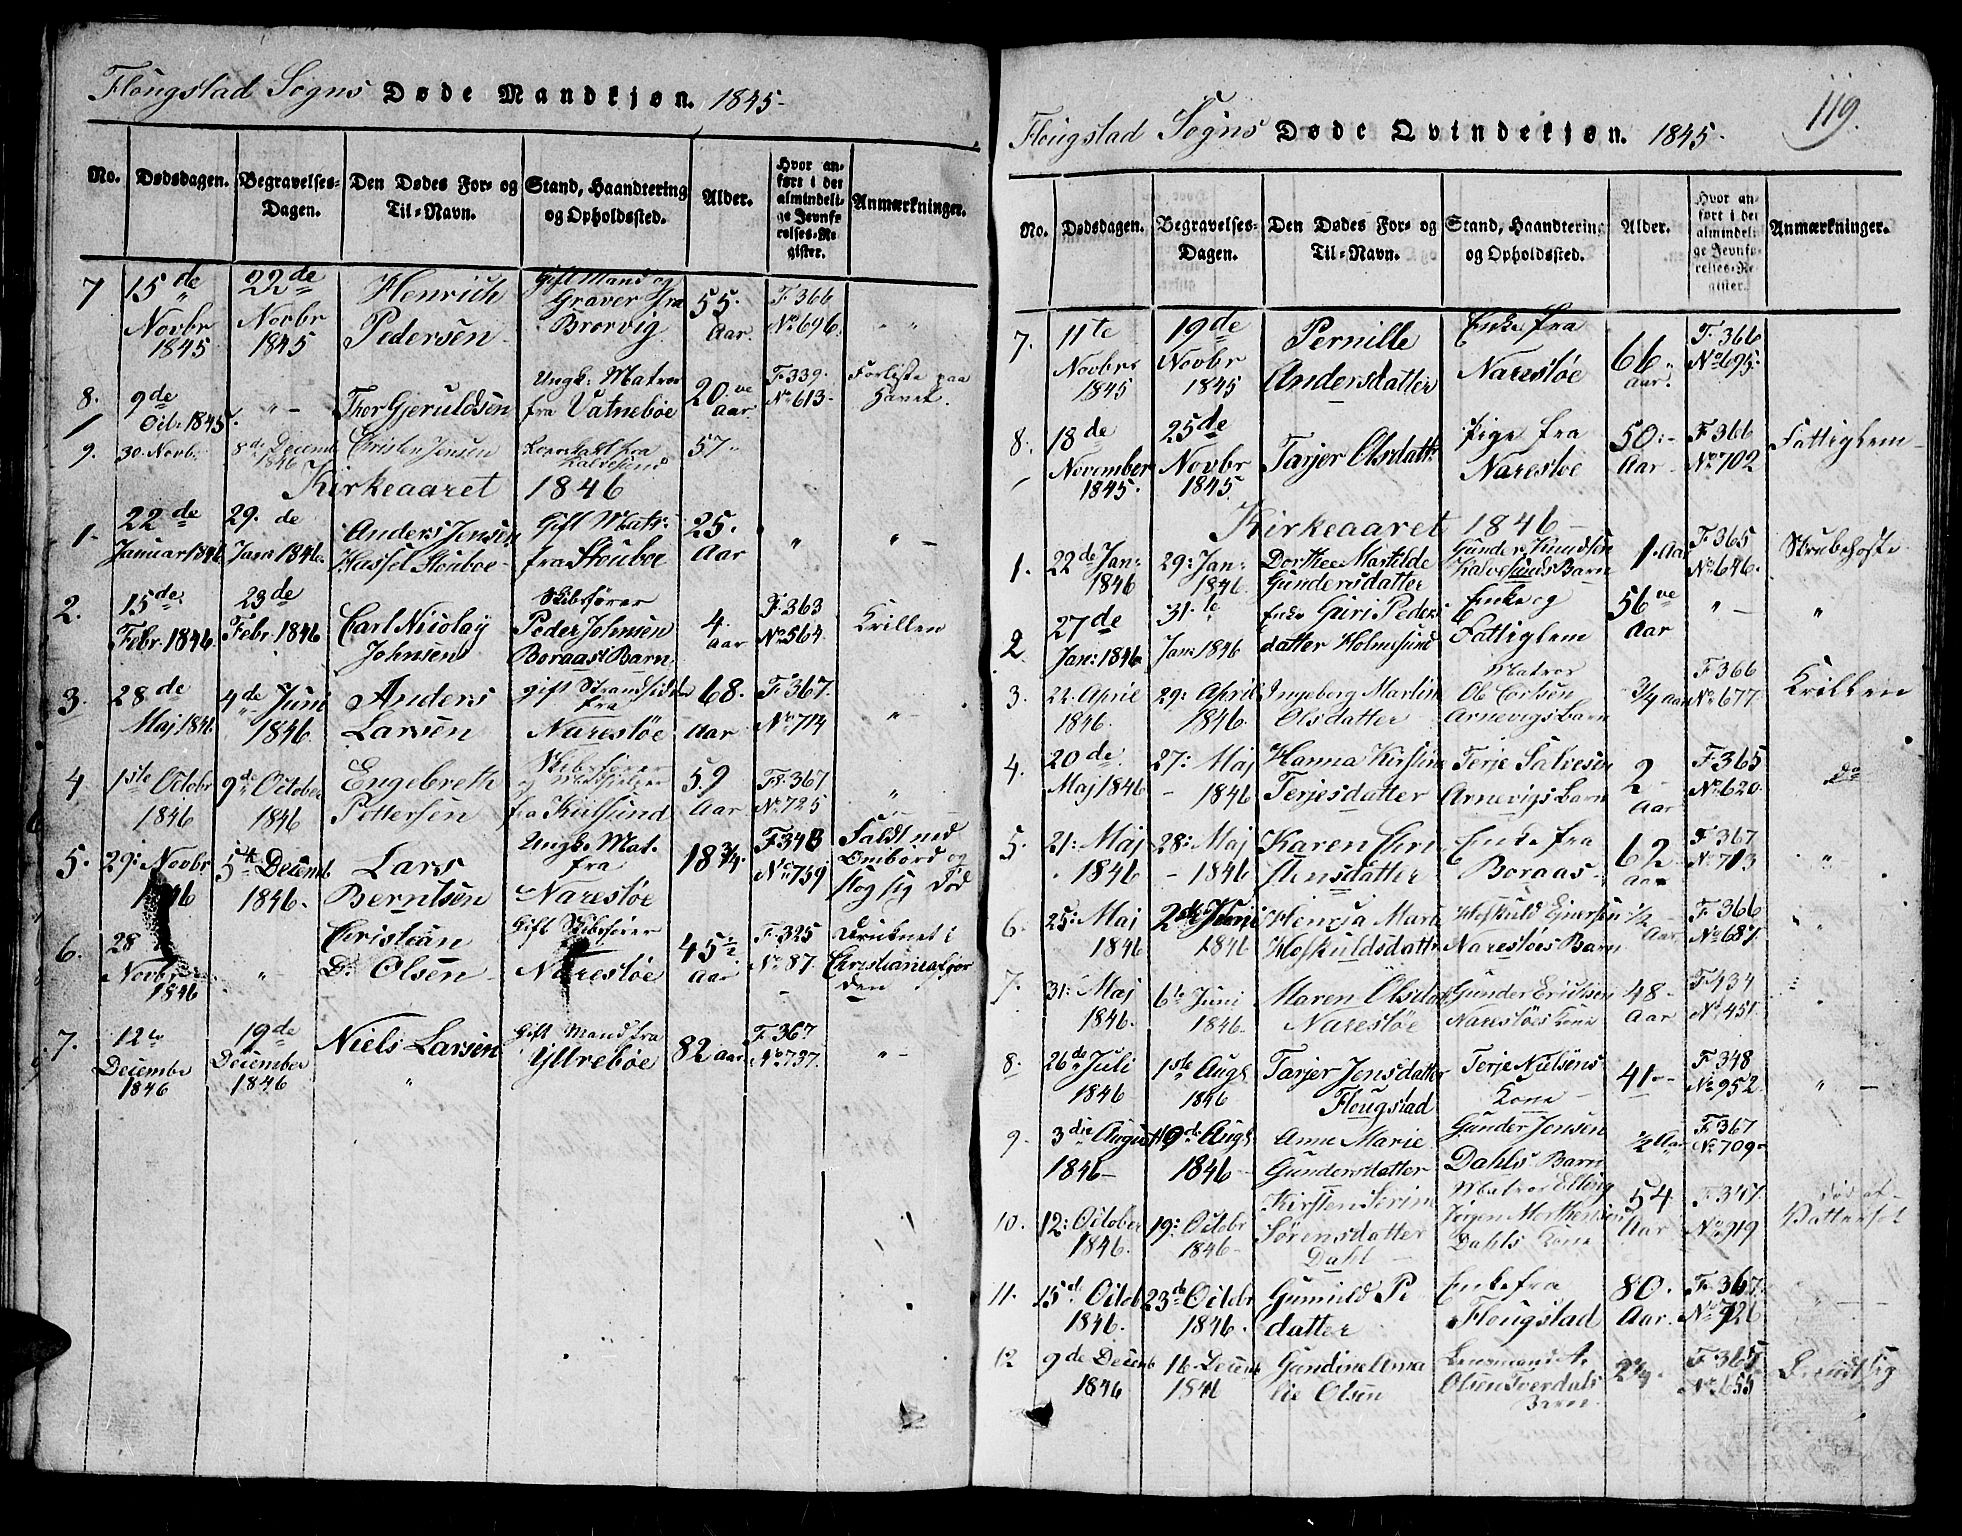 Flougstad Sogns Døde Mandkjøn. 1845-
No.
Dødsdagen.
Begravelses-
Dagen.
Den Dødes For- og
Til-Navn.
Stand, Haandtering
og Opholdssted.
Alder.
Hvor an-
ført i det
almindeli-
ge Jevnfø
relses-Re
gister.
Anmærkninger.
7 15de Novbr 1845
22de Novbr 1845
Henrich Pedersen
Gift Mand og Graver fra Brorvig
55. Aar.
F. 366 No 696.
8. 9de Octb. 1845.
Thor Gjeruldsen
Ungk: Matros fra Vatnebøe
20ve aar
F. 339. No 613-
Forliste paa Havet.
9. 30. Novb.
8de Decemb 1846
Christen Jensen
fra Kalvesund
57
Kirkeaaret 1846
1- 22de Januar 1846
29. de Jan: 1846.
Anders Jensen Hassel Stouboe-
Gift Matr: fra Stouboe
25. Aar
2. 15de Febr. 1846.
23de Febr. 1846
Carl Nicolay Johnsen
Skibsfører Peder Johnsen Boraas: Barn
4. aar
F. 363 No 564.
Krillen
3. 28de Maj 1846
4de Juni 1846
Anders Larsen
gift Strandsidder fra Narestøe
68. Aar
F. 367. No 714
4 1ste Octobr 1846
9de October 1846
Engebreth Pettersen
Skibsfører fra Kilsund
59 Aar
F. 367 No 725
5. 29: Novbr 1846
5te Decemb 1846.
Lars Berntsen
Ungk: Mat. fra Narestøe
18 3/4.
F. 343 No 759
Faldt ned Ombord og slog sig Død
6. 28 Novbr 1846
Christian D. Olsen
Gift Skibsfører Narestøe
45 1/2 Aar
F. 325 No 87.
Druknet i Christianiafjor den
7. 12te December 1846
19de December 1846
Niels Larsen
Gift Mand fra Yttrebøe
82 aar
F. 367 No 737.
119.
Flougstad Sogns Døde Qvindekjøn. 1845-
No.
Dødsdagen.
Begravelses-
Dagen.
Den Dødes For- og
Til-Navn.
Stand, Haandtering
og Opholdssted.
Alder.
Hvor an-
ført i det
almindeli-
ge Jevnfø
relses-Re
gister.
Anmærkninger.
7. 11te Novbr 1845
19de Novbr 1845
Pernille Andersdatter
Enke fra Narestøe
66 aar.
F. 366 No 695.
8. 18de November 1845.
25de Novbr 1845
Tarjer Olsdatt:
Pige fra Narestøe
50:- Aar
F. 366 No 702
Fattiglem
Kirkeaaret 1846-
1. 22de Jan: 1846
29: Jan: 1846.
Dorthee Mathilde Gundersdatter
Gunder Knudsen Kalvesunds Barn
1. Aar
F. 365 No 646.
Skrubehoste
2 27de Jan: 1846
31.te Jan: 1846
Enke Guri Peders datter Holmesund
Enke og Fattiglem
56ve Aar
3. 22. April 1846.
29: April 1846.
Ingeberg Martine Olsdatter
Matros Ole Carlsen Arnevigs Barn
3/4 aar
F. 366 No 677.
Krillen
4. 20de Maj 1846
27: Maj 1846
Hanna Kirstine Terjesdatter
Terje Salvesen Arnevigs Barn
2- Aar
F. 365 No 620
do
5. 21: Maj 1846
28: Maj 1846
Karen Chri stensdatter
Enke fra Boraas
62- Aar
F. 367 No 713
6. 25: Maj 1846
2de Juni 1846
Henrja Marie Hoskuldsdattr
Hoskuld Ejnersen Narestøes Barn
1/2 Aar
F. 366 No 687.
7. 31: Maj 1846.
6te Juni 1846.
Maren Olsdat Narestøe
Gunder Ericksen Narestøes Kone
48- Aar
F. 434 No 451
8. 26de Juli 1846
1ste Aug: 1846
Tarjer Jensdatter Flougstad
Terje Nielsens Kone
41-
F. 348 No 952.
9. 3die August 1846-
10de Aug: 1846
Anne Marie Gundersdatter
Gunder Jensen Dahls Barn
1/2 Aar
F. 367 No 709-
10. 12: October 1846.
19: Octobr 1846-
Kirsten Serine Sørensdatter Dahl
Matros Elling Jørgen Morthensen Dahls Kone
54 Aar
F. 347. No 919
død af Vattersot
11. 15de Octob 1846.
23de Octobr 1846.
Gunnild Pe datter
Enke fra Flougstad
80. Aar.
F. 367. No 726
12 9de Decemb 1846
16 Decemb 1846
Gundine Ama lie Olsen
Lensmand A. Olsen Sverdals Barn
2 3/4.
F. 365 No 655